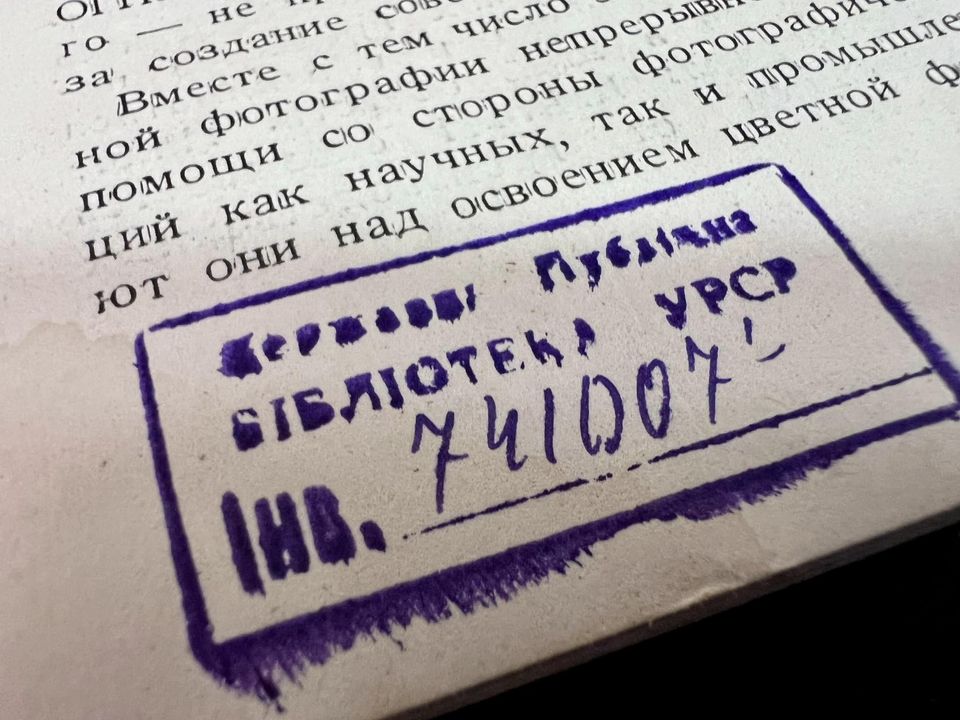 го — не
за создание
Вместе с тем число
ной фотографии
помощи со стороны
ций как научных, так и
ют они над освоением цветной
Державна Публічна
БІБЛІОТЕКА УРСР
ІНВ. 741007